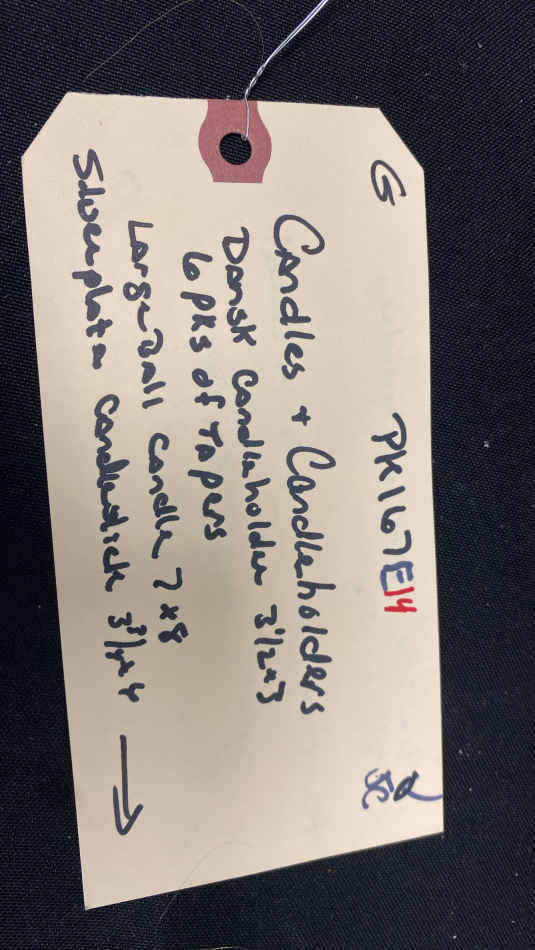 G PK167E14
Candles + Candleholders
Dansk Candleholder 3 1/2 x 3
6 pks of Tapers
Large Ball Candle 7 x 8
Silverplate Candlestick 3 3/4 x 4 →